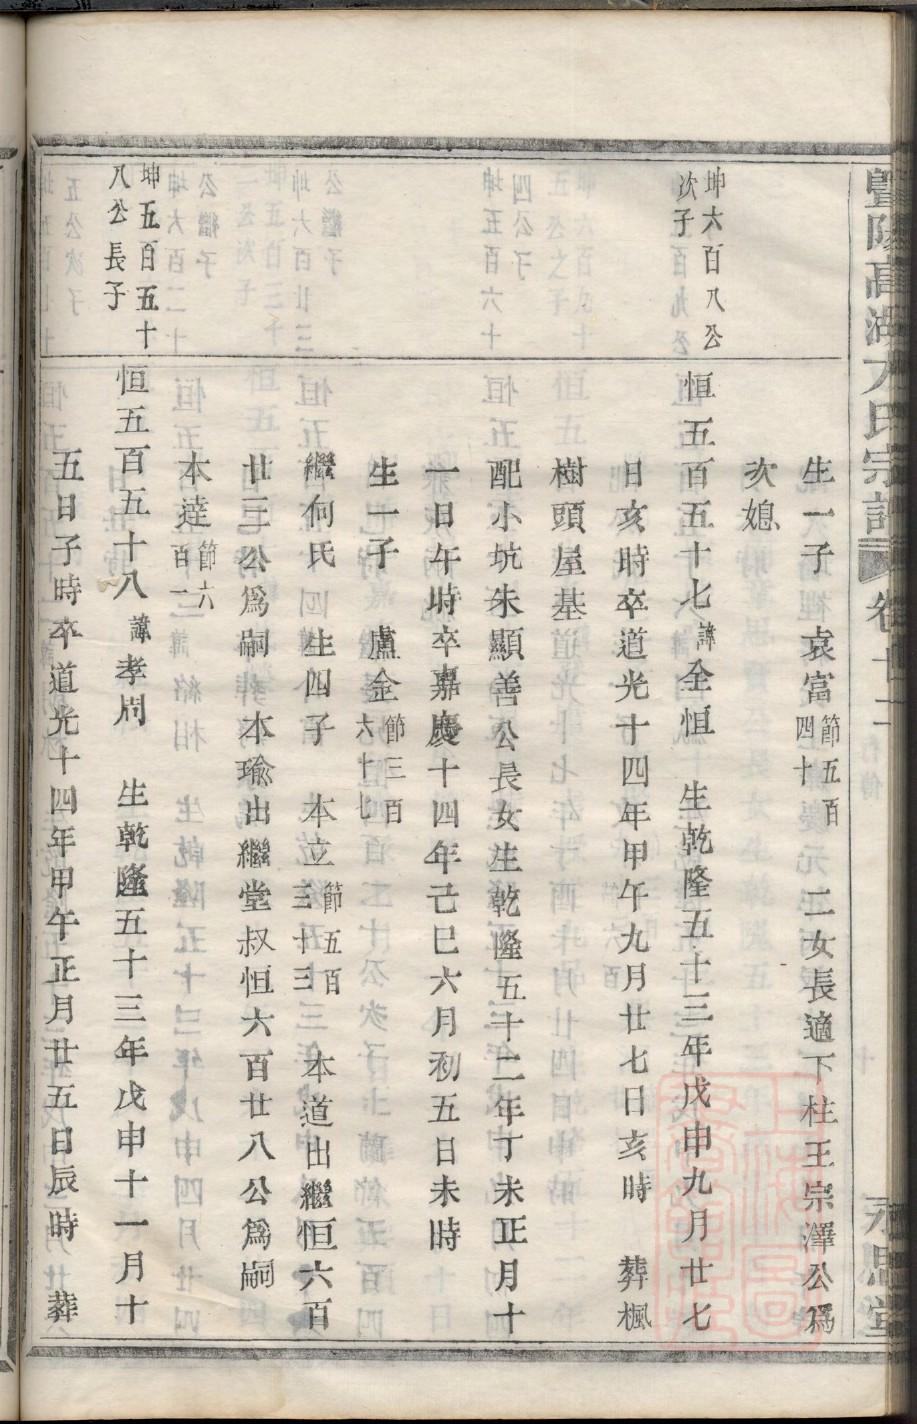 暨陽高湖方氏宗譜 卷廿二 永思堂
生一子 袁富節五百四十 二女長適下柱王宗澤公為
次媳
坤六百八公次子
恒五百五十七諱全恒 生乾隆五十三年戊申九月廿七
日亥時卒道光十四年甲午九月廿七日亥時 葬楓
樹頭屋基
配小坑朱顯善公長女生乾隆五十二年丁未正月十
一日午時卒嘉慶十四年己巳六月初五日未時
生一子 盧金節三百六十七
繼何氏 生四子 本立節五百三十三 本道出繼恒六百
廿三公爲嗣 本瑜出繼堂叔恒六百廿八公爲嗣
本達節六百一
坤五百五十八公長子
恒五百五十八諱孝周 生乾隆五十三年戊申十一月十
五日子時卒道光十四年甲午正月廿五日辰時 葬